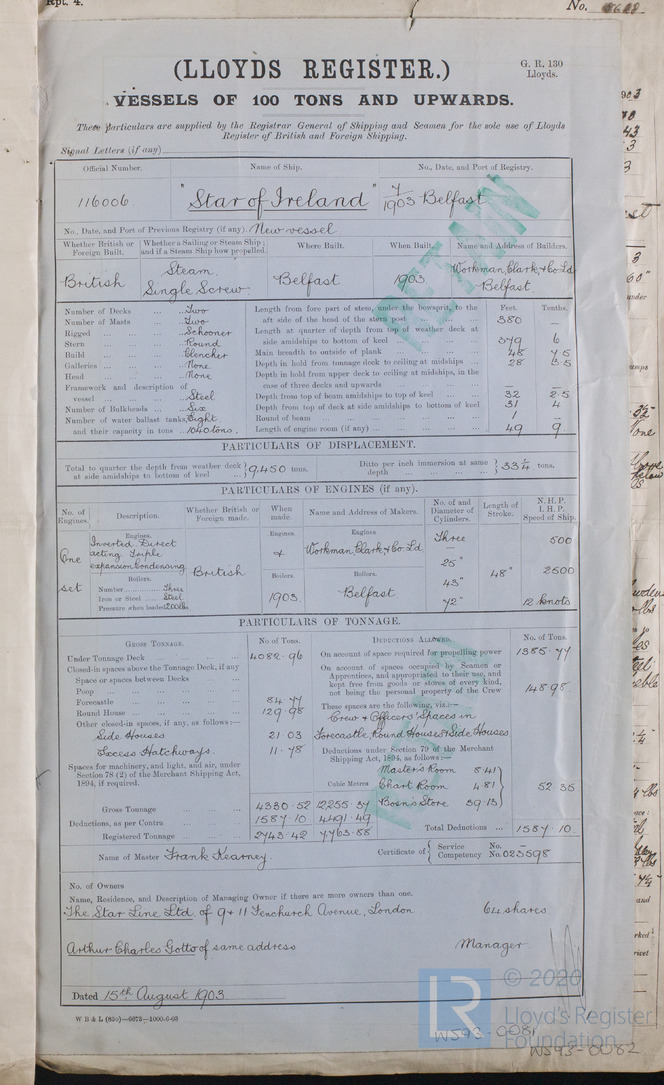 Rpt. 4.
No.
(LLOYDS REGISTER.)
G. R. 130
Lloyds.
VESSELS OF 100 TONS AND UPWARDS.
These particulars are supplied by the Registrar General of Shipping and Seamen for the sole use of Lloyds
Register of British and Foreign Shipping.
Signal Letters (if any)
Official Number. Name of Ship. No., Date, and Port of Registry.
116006 "Star of Ireland" 7/1903 Belfast
No., Date, and Port of Previous Registry (if any). New vessel
Whether British or Foreign Built. Whether a Sailing or Steam Ship; and if a Steam Ship how propelled. Where Built. When Built. Name and Address of Builders.
British Steam Single Screw Belfast 1903 Workman, Clark & Co Ld Belfast
Number of Decks ... Two
Number of Masts ... Two
Rigged ... Schooner
Stern ... Round
Build ... Clencher
Galleries ... None
Head ... None
Framework and description of vessel ... Steel
Number of Bulkheads ... Six
Number of water ballast tanks Eight
and their capacity in tons ... 1040 tons.
Feet. Tenths.
Length from fore part of stem, under the bowsprit, to the aft side of the head of the stern post 380 —
Length at quarter of depth from top of weather deck at side amidships to bottom of keel 379 6
Main breadth to outside of plank 48 75
Depth in hold from tonnage deck to ceiling at midships 28 55
Depth in hold from upper deck to ceiling at midships, in the case of three decks and upwards — —
Depth from top of beam amidships to top of keel 32 25
Depth from top of deck at side amidships to bottom of keel 31 4
Round of beam 1 —
Length of engine room (if any) 49 9
PARTICULARS OF DISPLACEMENT.
Total to quarter the depth from weather deck at side amidships to bottom of keel } 9,450 tons. Ditto per inch immersion at same depth } 33¼ tons.
PARTICULARS OF ENGINES (if any).
No. of Engines. Description. Whether British or Foreign made. When made. Name and Address of Makers. No. of and Diameter of Cylinders. Length of Stroke. N.H.P. I.H.P. Speed of Ship.
One set
Engines.
Inverted Direct acting Triple expansion Condensing
Boilers.
Number Three
Iron or Steel Steel
Pressure when loaded 200 lbs
British
Engines & Boilers. 1903
Engines Workman, Clark & Co Ld
Boilers. Belfast
Three
—
25"
43"
72"
48"
500
2500
12 knots
PARTICULARS OF TONNAGE.
GROSS TONNAGE. No. of Tons.
Under Tonnage Deck 4082.96
Closed-in spaces above the Tonnage Deck, if any
Space or spaces between Decks
Poop
Forecastle 84 77
Round House 129.98
Other closed-in spaces, if any, as follows:—
Side Houses 21 03
Excess Hatchways. 11.78
Spaces for machinery, and light, and air, under
Section 78 (2) of the Merchant Shipping Act,
1894, if required.
Cubic Metres
Gross Tonnage 4330.52 12255.37
Deductions, as per Contra 1587.10 4491.49
Registered Tonnage 2743.42 7763.88
DEDUCTIONS ALLOWED. No. of Tons.
On account of space required for propelling power 1385.77
On account of spaces occupied by Seamen or
Apprentices, and appropriated to their use, and
kept free from goods or stores of every kind,
not being the personal property of the Crew 148 98
These spaces are the following, viz.:—
Crew & Officers' Spaces in
Forecastle, Round House & Side Houses
Deductions under Section 79 of the Merchant
Shipping Act, 1894, as follows:—
Master's Room 8.41
Chart Room 4.81
Bosn's Store 39.13
52 35
Total Deductions ... 1587.10
RETAIN
Name of Master Frank Kearney. Certificate of { Service No. —
Competency No. 023598
No. of Owners
Name, Residence, and Description of Managing Owner if there are more owners than one.
The Star Line Ltd. of 9 & 11 Fenchurch Avenue, London 64 shares
Arthur Charles Gotto of same address Manager
Dated 15th August 1903
W B & L (830)—6673—1000-6-03
© 2020
Lloyd's Register
Foundation
WS93-0081
WS93-0082